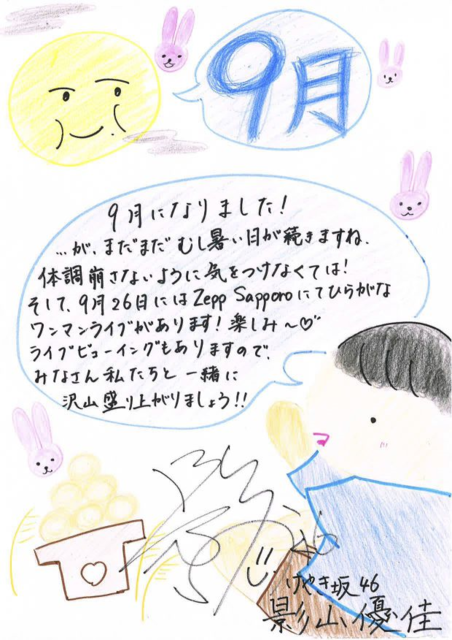 9月
9月になりました!
...が、まだまだむし暑い日が続きますね、
体調崩さないように気をつけなくては!
そして、9月26日にはZepp Sapporoにてひらがな
ワンマンライブがあります!楽しみ〜♡
ライブビューイングもありますので、
みなさん私たちと一緒に
沢山盛り上がりましょう!!
けやき坂46
影山優佳